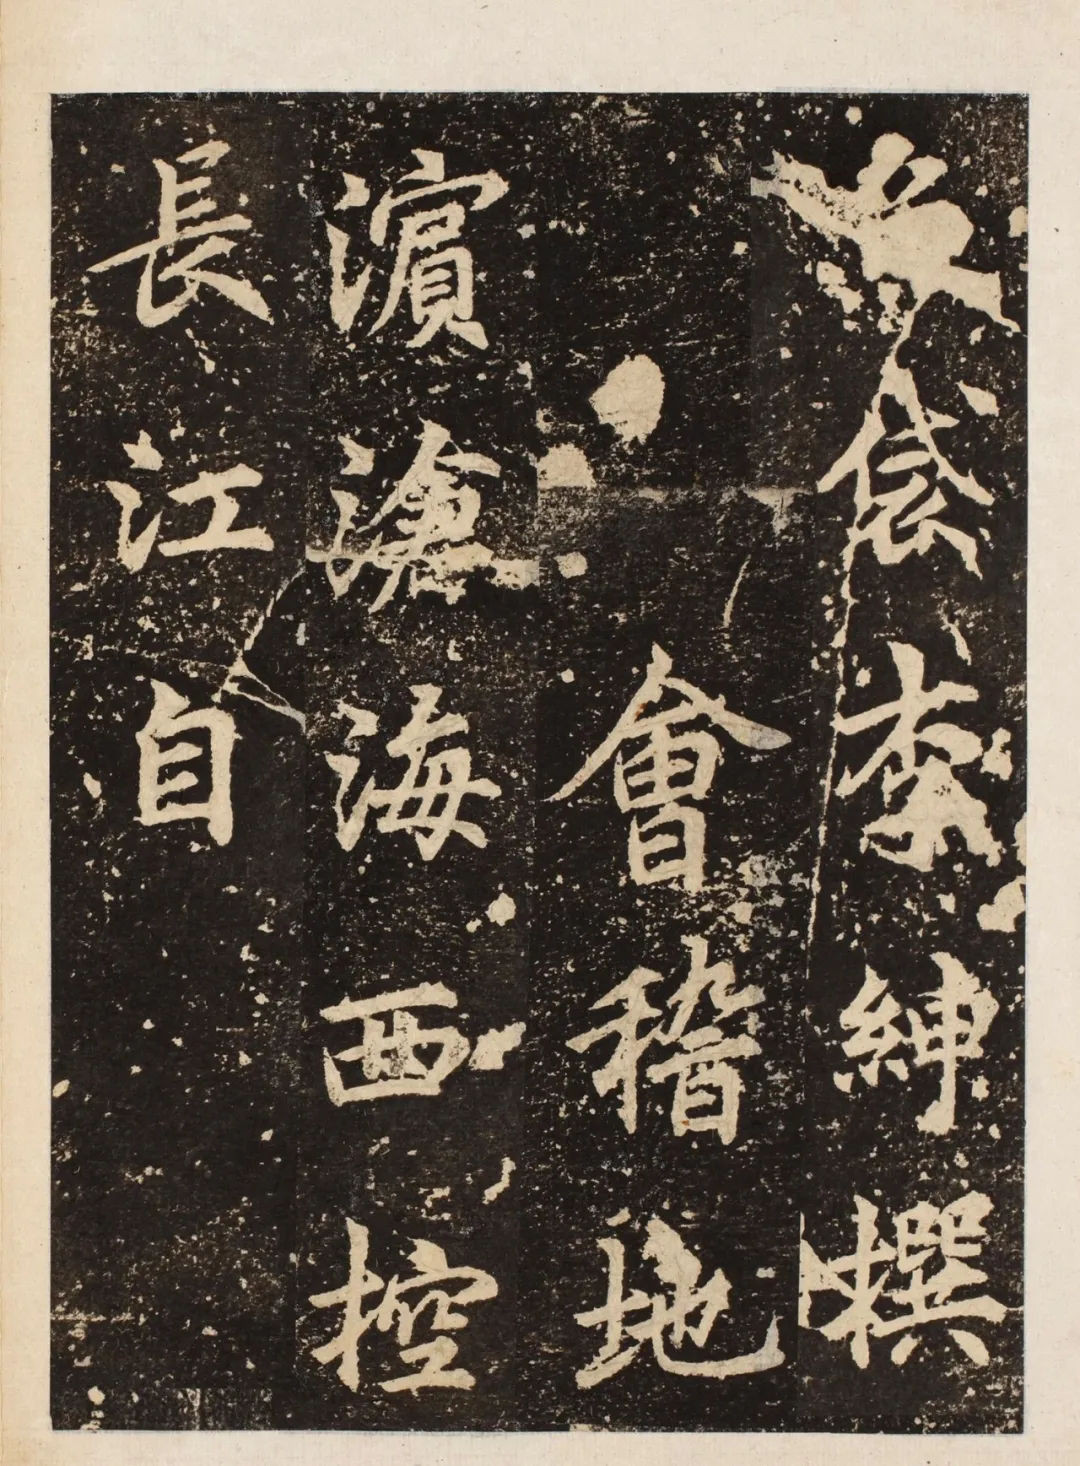 袋李紳撰
會稽地
濱滄海西控
長江自